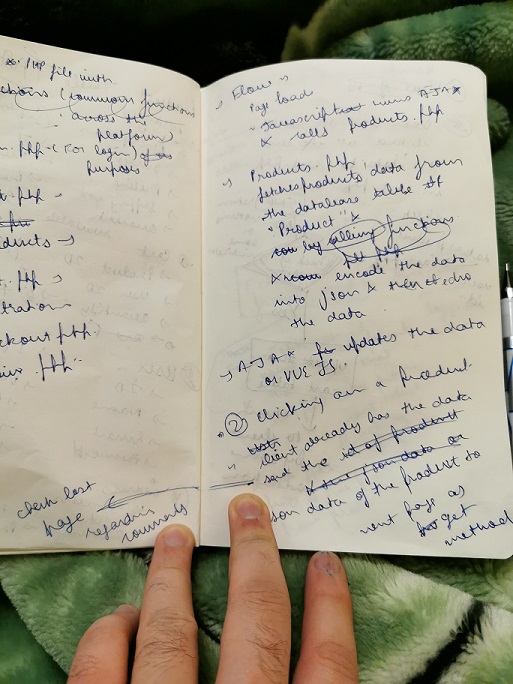 .PHP file with
(common functions
across the
platform)
.php - (for login)
purposes
.php -
.php
ducts →
.php →
tration
ckout.php
.php.
check last
page
regarding
comments
→ Flow →
Page load
→ Javascript runs AJAX
& calls products.php
→ Products.php
fetches products data from
the database table
"Product" &
by calling functions
& encode the data
into json & then echo
the data
→ AJAX updates the data
or VUE JS.
② clicking on a product
client already has the data
send the id of product
& the json data
son data of the product to
next page as
get
method